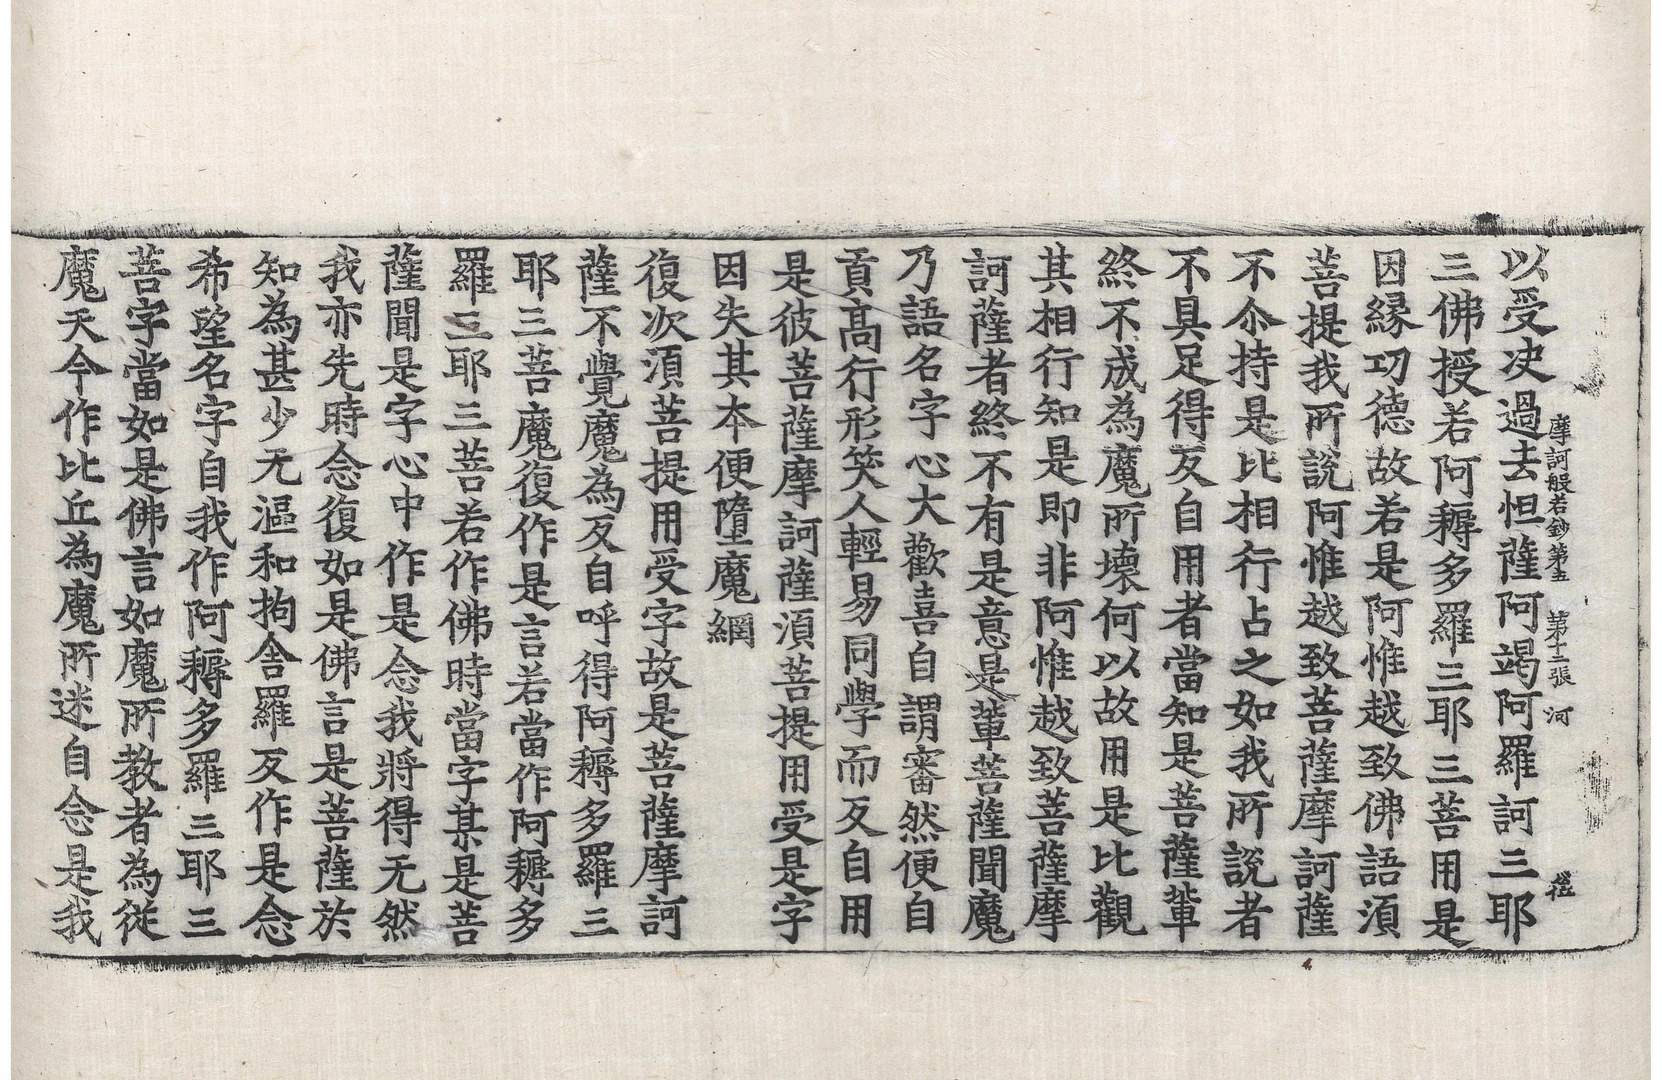 摩訶般若鈔第五 第十二張 河
以受决過去怛薩阿竭阿羅訶三耶
三佛授若阿耨多羅三耶三菩用是
因緣功德故若是阿惟越致佛語湏
菩提我所說阿惟越致菩薩摩訶薩
不尒持是比相行占之如我所說者
不具足得反自用者當知是菩薩軰
終不成為魔所壞何以故用是比觀
其相行知是即非阿惟越致菩薩摩
訶薩者終不有是意是軰菩薩聞魔
乃語名字心大歡喜自謂審然便自
貢高行形笑人輕易同學而反自用
是彼菩薩摩訶薩湏菩提用受是字
因失其本便墮魔網
復次湏菩提用受字故是菩薩摩訶
薩不覺魔為反自呼得阿耨多羅三
耶三菩魔復作是言若當作阿耨多
羅三耶三菩若作佛時當字某是菩
薩聞是字心中作是念我將得无然
我亦先時念復如是佛言是菩薩於
知為甚少无漚和拘舍羅反作是念
希望名字自我作阿耨多羅三耶三
菩字當如是佛言如魔所教者為從
魔天今作比丘為魔所迷自念是我